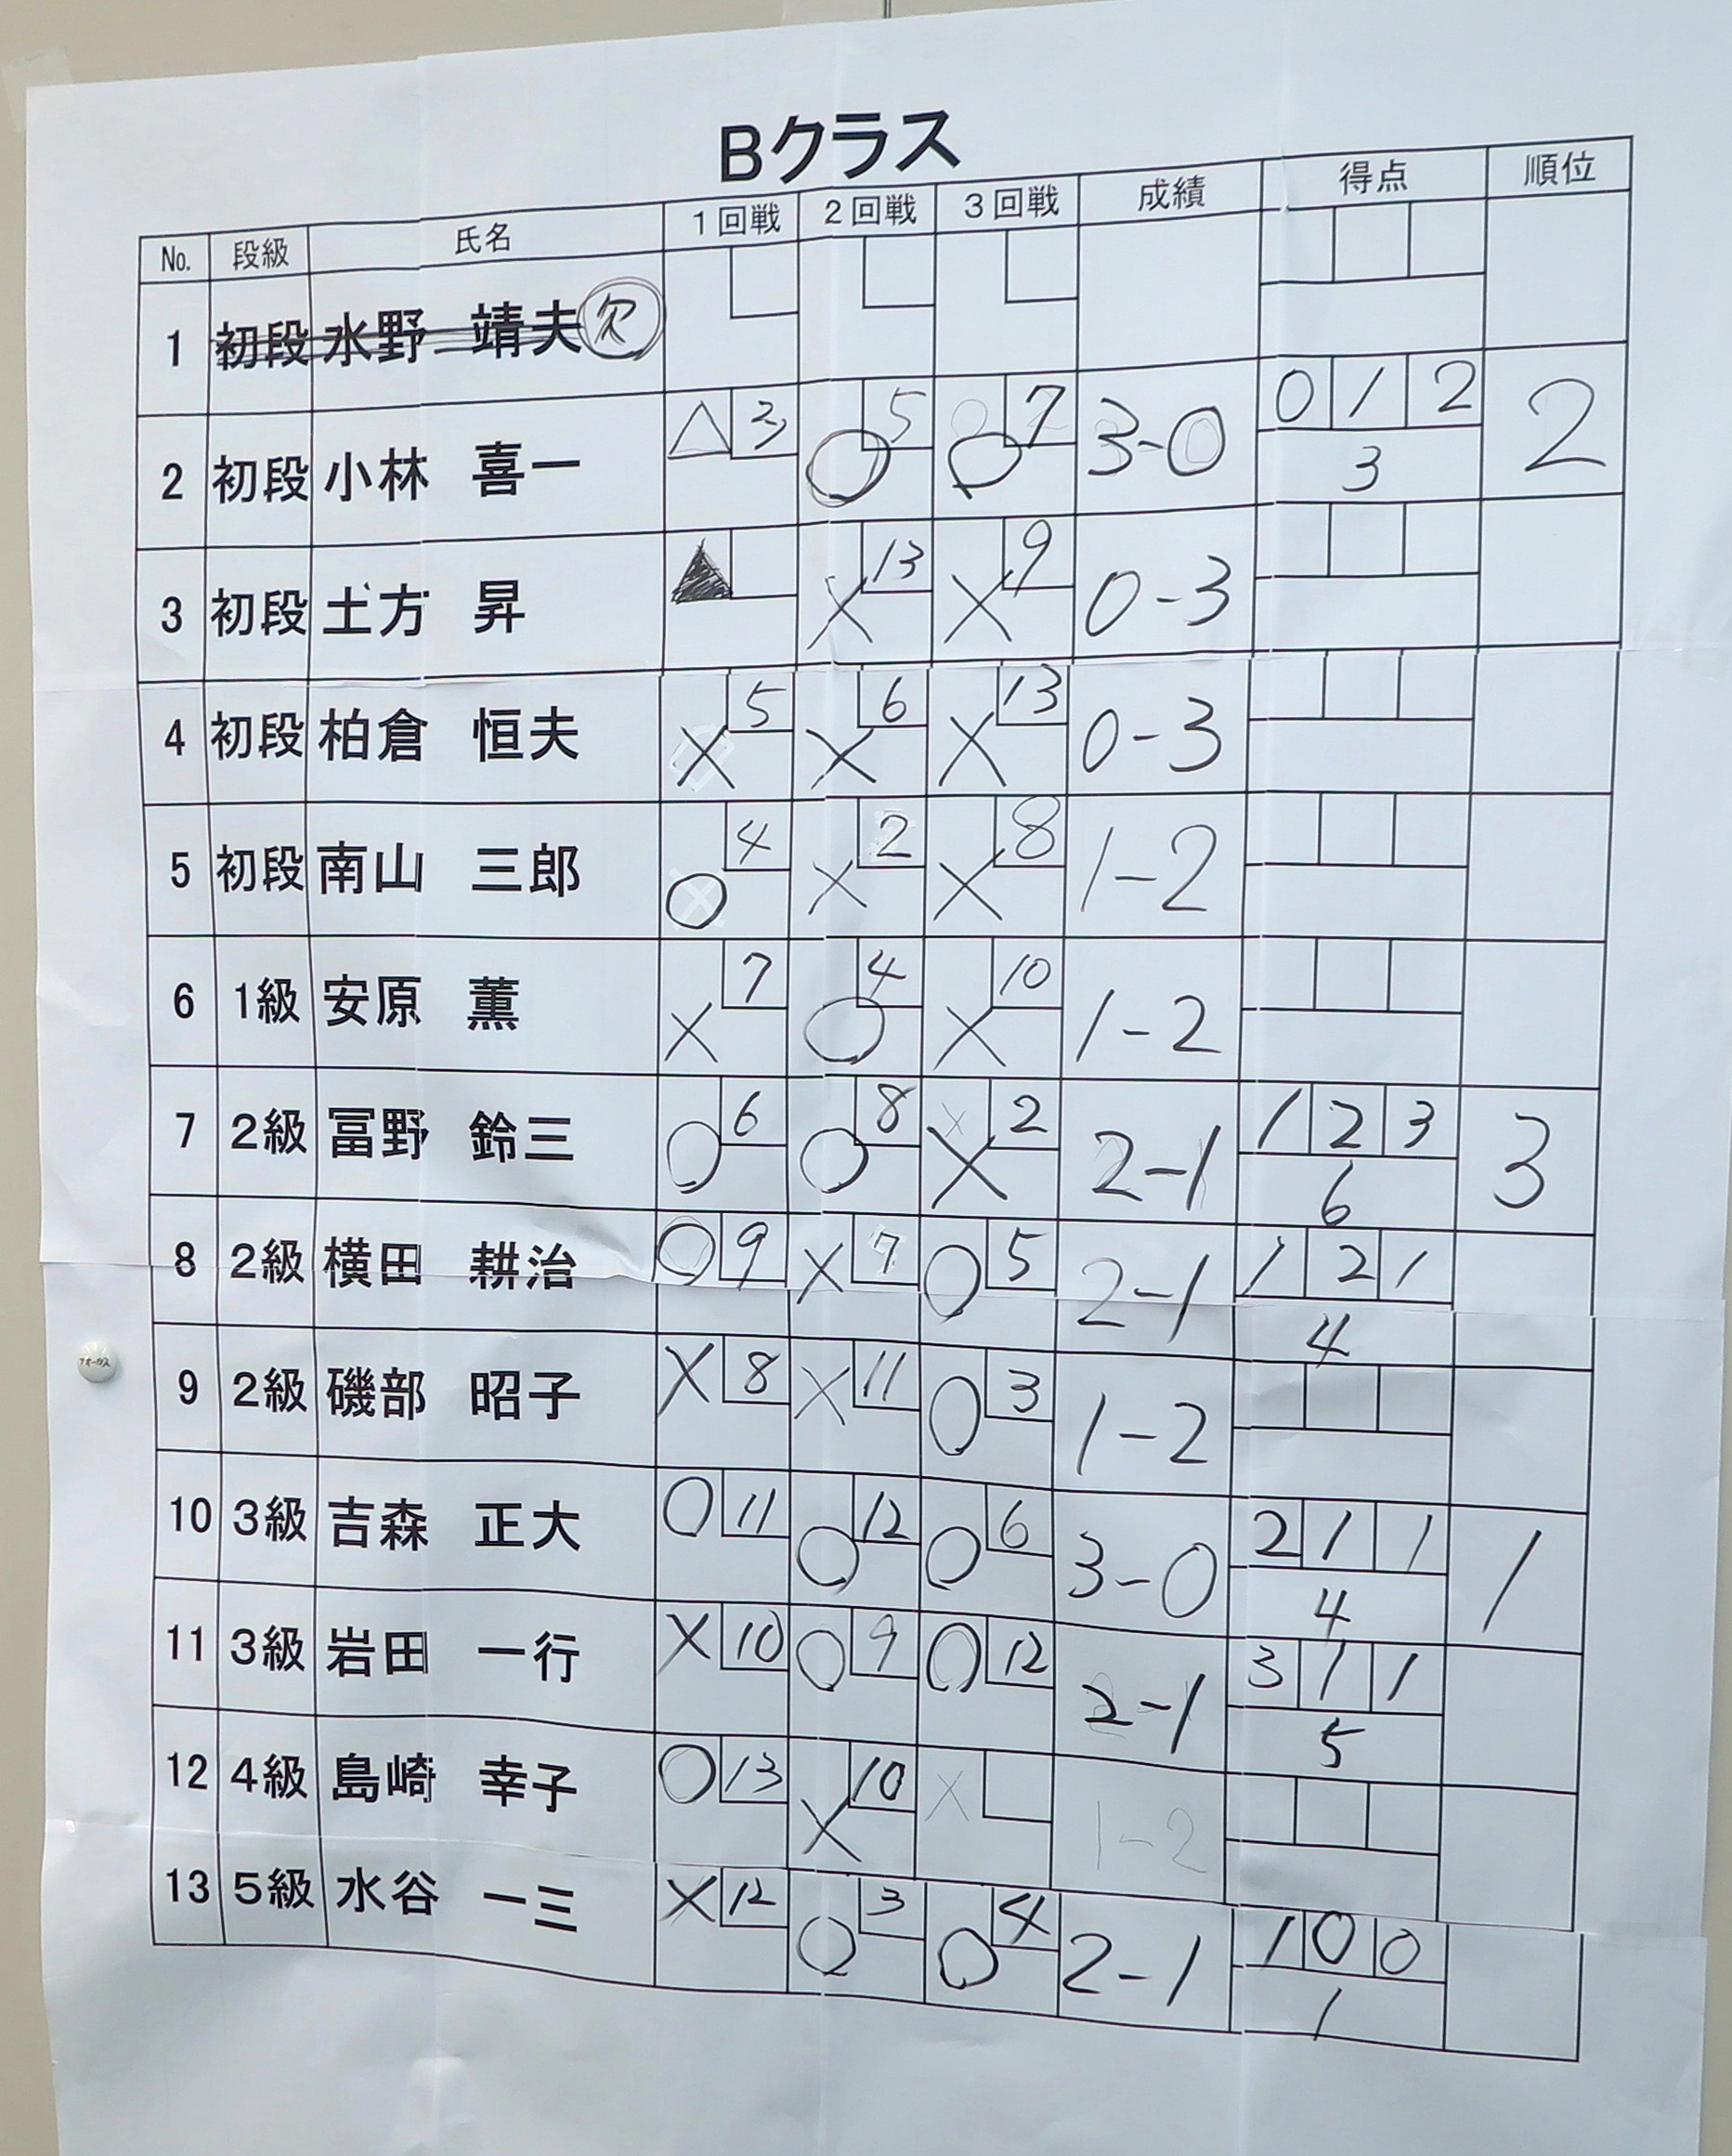 Bクラス
No. 段級 氏名 1回戦 2回戦 3回戦 成績 得点 順位
1 初段 水野 靖夫 欠
2 初段 小林 喜一 △ 3 ○ 5 ○ 7 3-0 0 1 2 3 2
3 初段 土方 昇 ▲ × 13 × 9 0-3
4 初段 柏倉 恒夫 × 5 × 6 × 13 0-3
5 初段 南山 三郎 ○ 4 × 2 × 8 1-2
6 1級 安原 薫 × 7 ○ 4 × 10 1-2
7 2級 冨野 鈴三 ○ 6 ○ 8 × 2 2-1 1 2 3 6 3
8 2級 横田 耕治 ○ 9 × 7 ○ 5 2-1 1 2 1 4
9 2級 磯部 昭子 × 8 × 11 ○ 3 1-2
10 3級 吉森 正大 ○ 11 ○ 12 ○ 6 3-0 2 1 1 4 1
11 3級 岩田 一行 × 10 ○ 9 ○ 12 2-1 3 1 1 5
12 4級 島崎 幸子 ○ 13 × 10 × 1-2
13 5級 水谷 一三 × 12 ○ 3 ○ 4 2-1 1 0 0 1